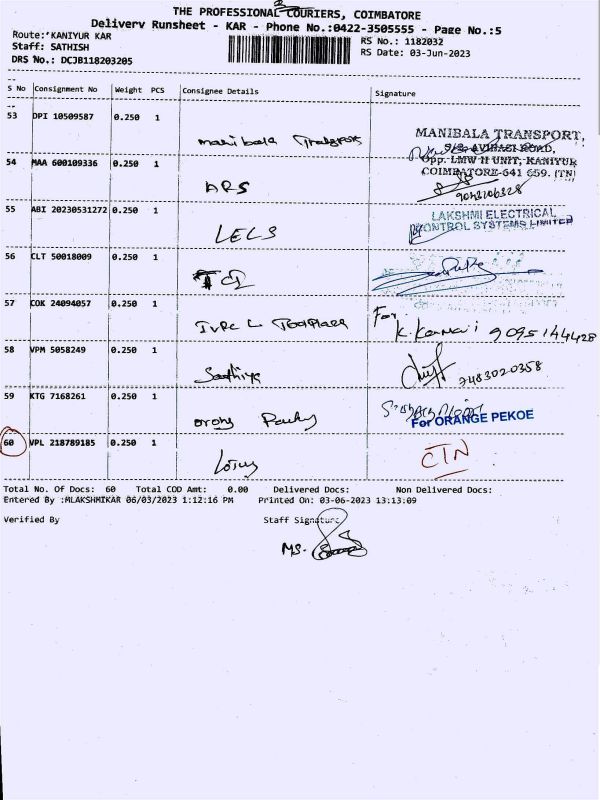 THE PROFESSIONAL COURIERS, COIMBATORE
Delivery Runsheet - KAR - Phone No.:0422-3505555 - Page No.:5
Route:'KANIYUR KAR
RS No.: 1182032
Staff: SATHISH
RS Date: 03-Jun-2023
DRS No.: DCJB118203205
S No Consignment No Weight PCS Consignee Details Signature
53 DPI 10509587 0.250 1 Manibala Transport
MANIBALA TRANSPORT,
5/3, AVINASI ROAD,
Opp. LMW II UNIT, KANIYUR
COIMBATORE-641 659. (TN)
54 MAA 600109336 0.250 1 ARS
55 ABI 20230531272 0.250 1 LECS
LAKSHMI ELECTRICAL
CONTROL SYSTEMS LIMITED
56 CLT 50018009 0.250 1
57 COK 24094057 0.250 1
For
9095144428
58 VPM 5058249 0.250 1 Sathiya
7483020358
59 KTG 7168261 0.250 1
For ORANGE PEKOE
60 VPL 218789185 0.250 1 Lotus CTN
Total No. Of Docs: 60 Total COD Amt: 0.00 Delivered Docs: Non Delivered Docs:
Entered By :MLAKSHMIKAR 06/03/2023 1:12:16 PM Printed On: 03-06-2023 13:13:09
Verified By Staff Signature
MS.